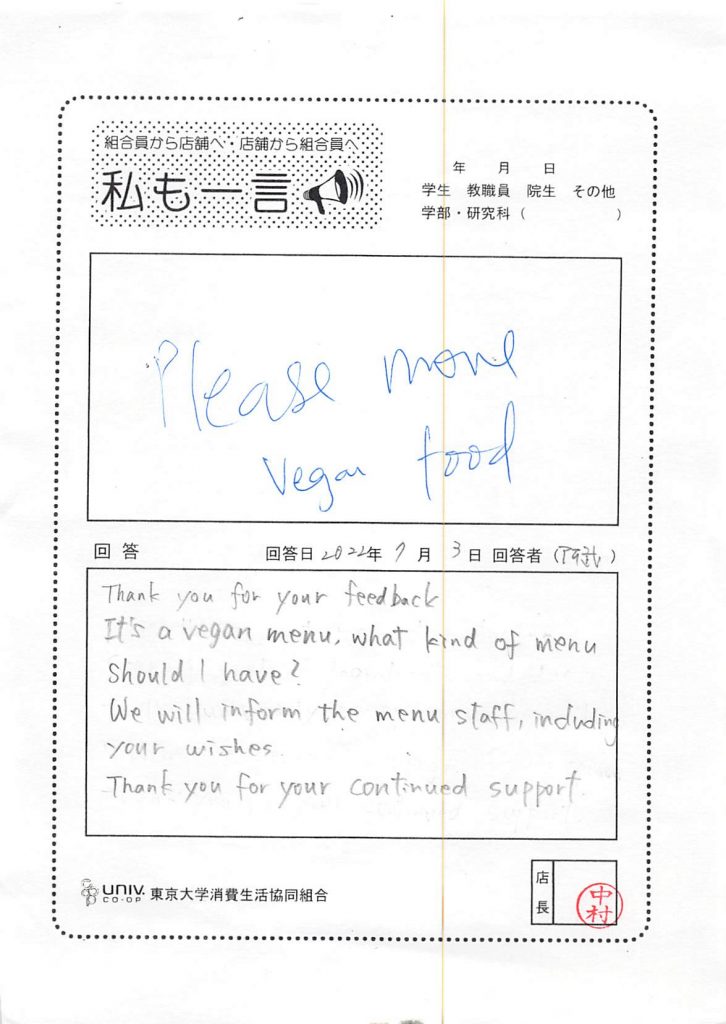 組合員から店舗へ・店舗から組合員へ
私も一言
年 月 日
学生 教職員 院生 その他
学部・研究科( )
Please more
vegan food
回答 回答日 2022年 7月 3日 回答者( )
Thank you for your feedback
It's a vegan menu, what kind of menu
Should I have?
We will inform the menu staff, including
your wishes.
Thank you for your continued support.
UNIV. CO-OP 東京大学消費生活協同組合
店長
中村